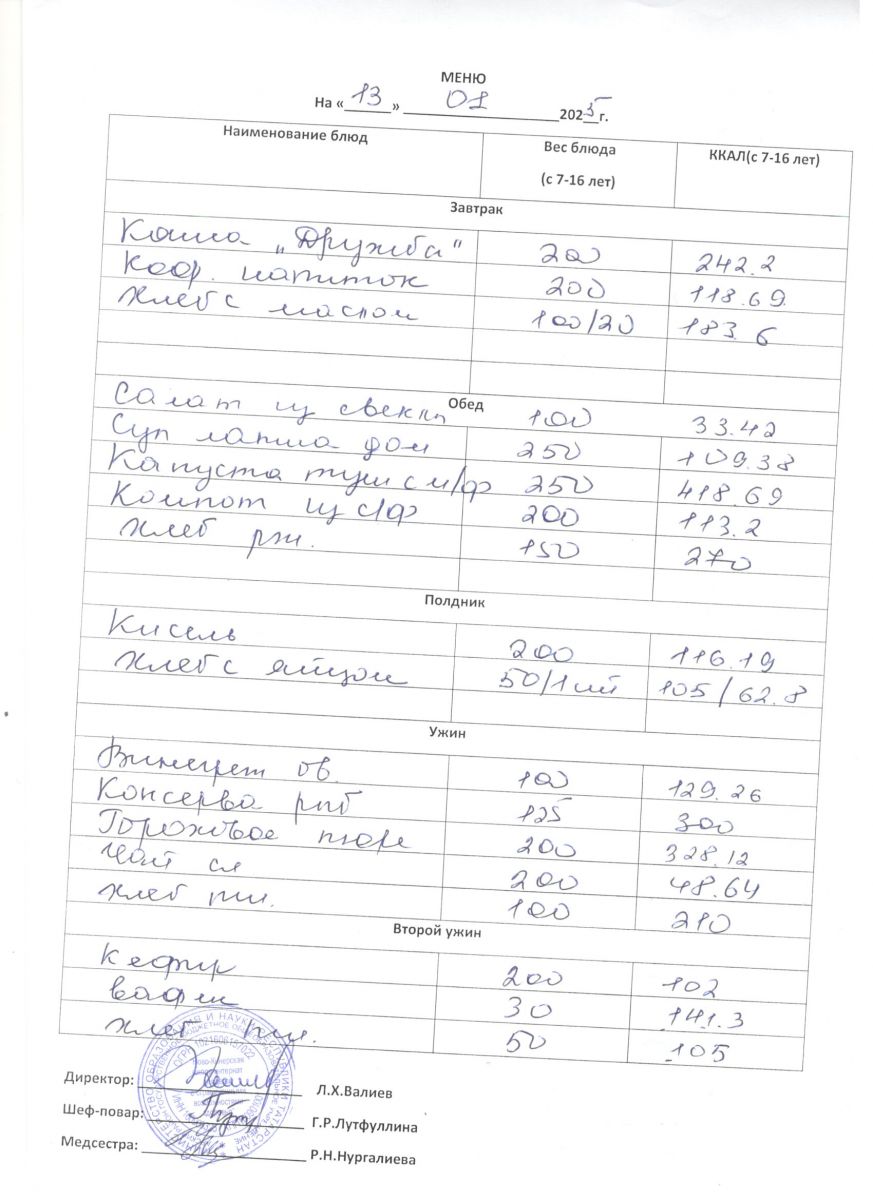 МЕНЮ
На «13» 01 2025г.
Наименование блюд Вес блюда (с 7-16 лет) ККАЛ(с 7-16 лет)
Завтрак
Каша „Дружба" 200 242.2
Коф. напиток 200 118.69
Хлеб с маслом 100/20 183.6
Обед
Салат из свеклы 100 33.42
Суп лапша дом 250 109.38
Капуста туш с м/ф 250 418.69
Компот из с/ф 200 113.2
Хлеб рж. 150 270
Полдник
Кисель 200 116.19
Хлеб с яйцом 50/1шт 105/62.8
Ужин
Винегрет ов. 100 129.26
Консерва рыб 125 300
Гороховое пюре 200 328.12
Чай сл 200 48.64
Хлеб пш. 100 210
Второй ужин
Кефир 200 102
вафли 30 141.3
Хлеб пш. 50 105
Директор: Л.Х.Валиев
Шеф-повар: Г.Р.Лутфуллина
Медсестра: Р.Н.Нургалиева